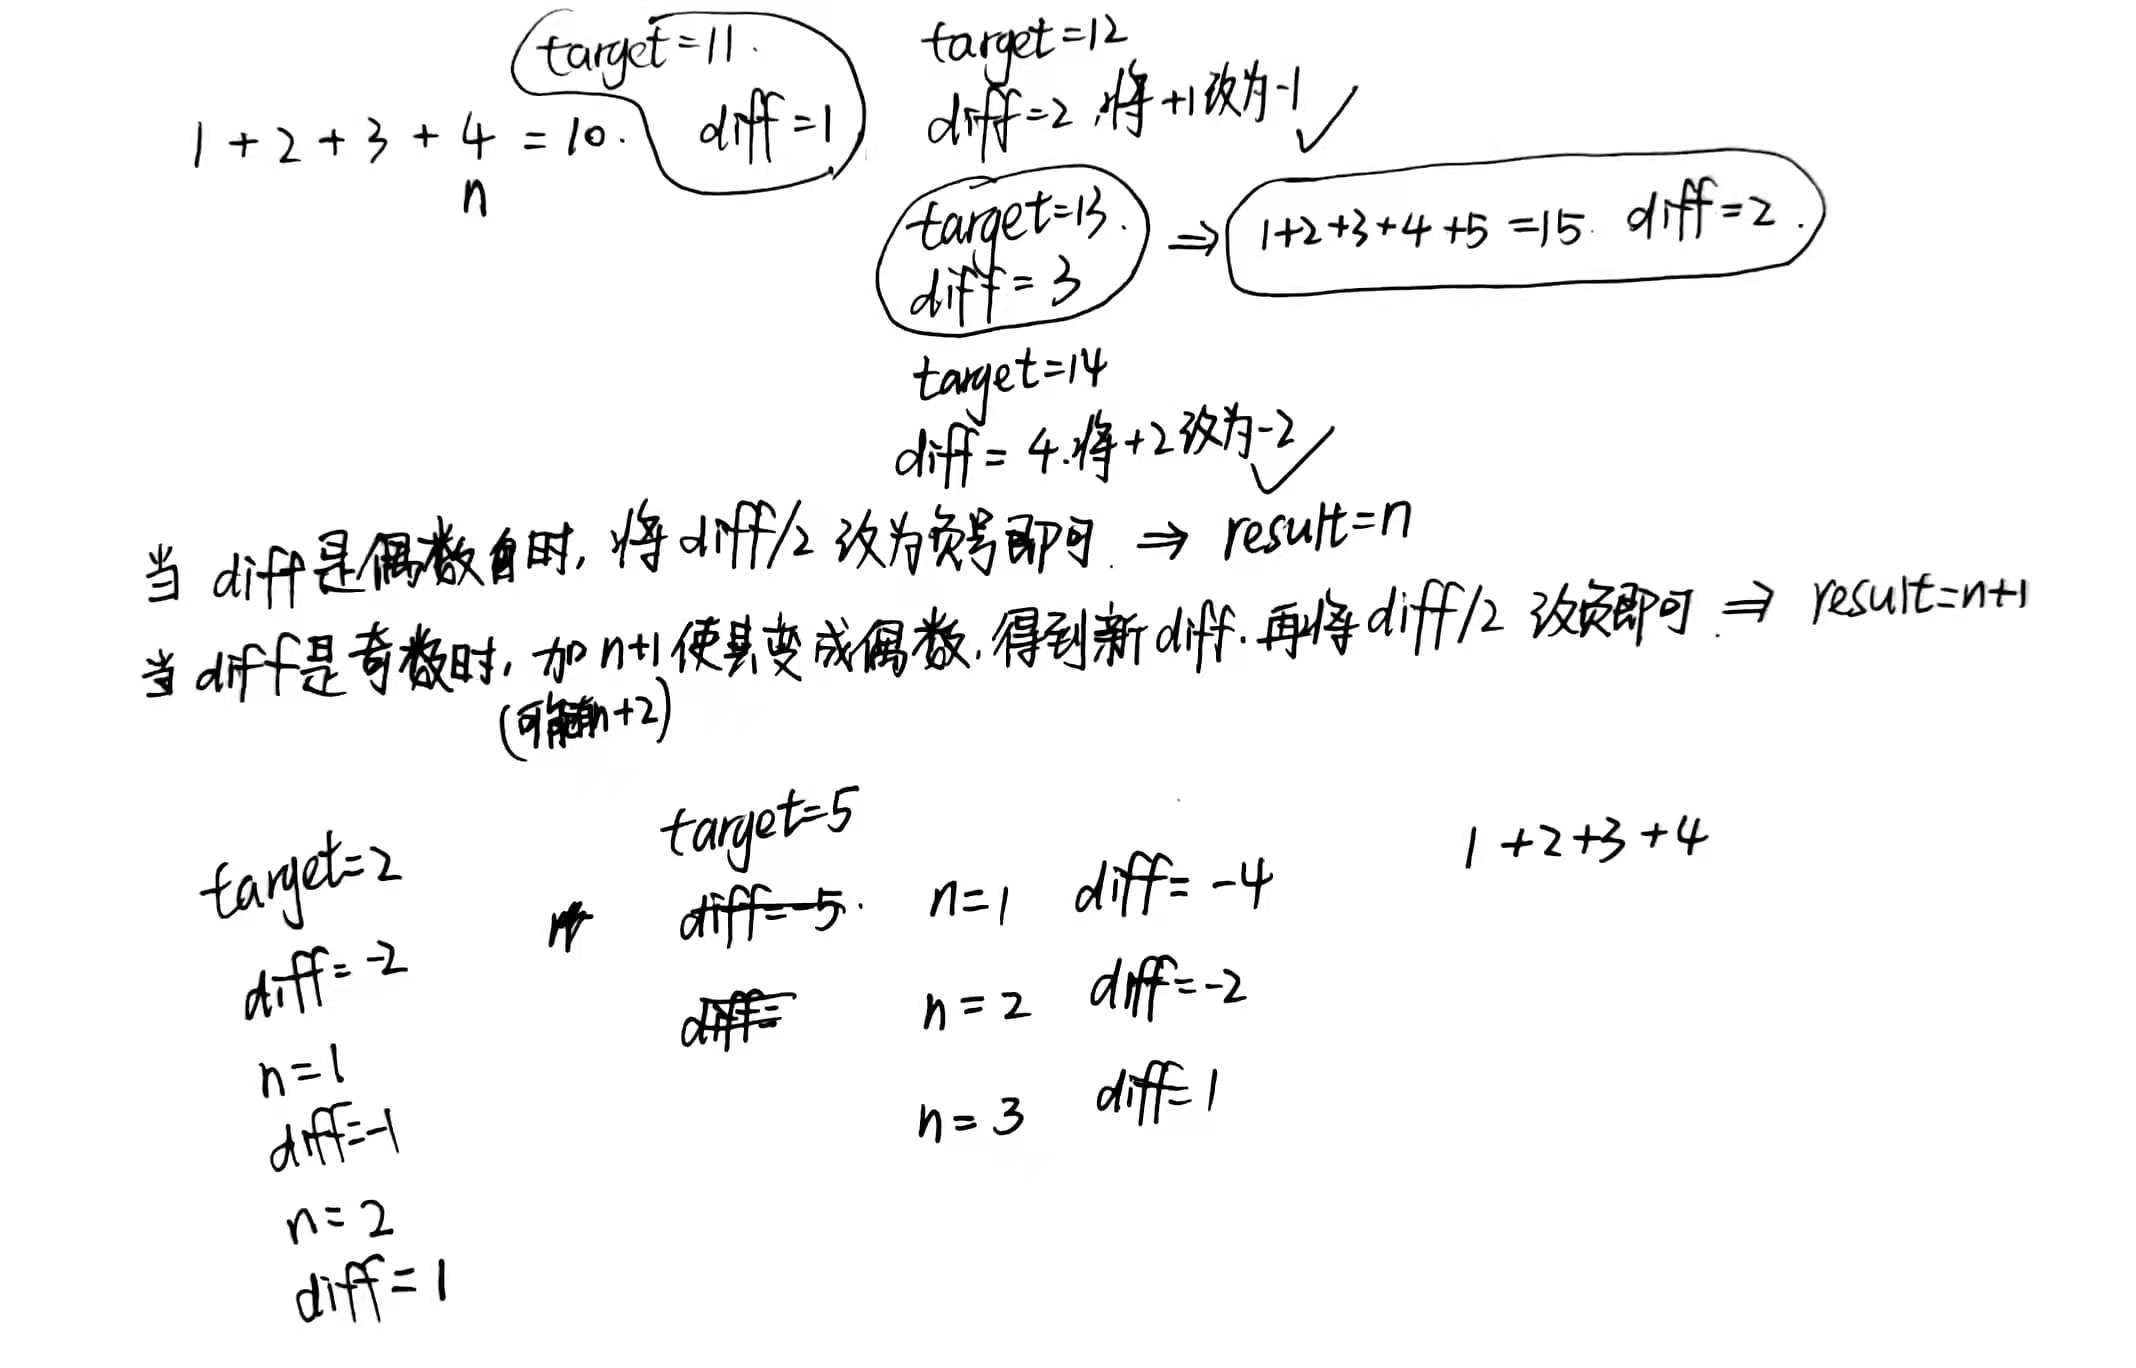 target=11.
diff=1
1+2+3+4=10.
n
target=12
diff=2,将+1改为-1 ✓
target=13.
diff=3
⇒ 1+2+3+4+5=15. diff=2.
target=14
diff=4.将+2改为-2 ✓
当diff是偶数时,将diff/2改为负号即可. ⇒ result=n
当diff是奇数时,加n+1使其变成偶数,得到新diff.再将diff/2改负即可. ⇒ result=n+1
(可能n+2)
target=2
diff=-2
n=1
diff=-1
n=2
diff=1
target=5
diff=-5.
diff=
n=1 diff=-4
n=2 diff=-2
n=3 diff=1
1+2+3+4